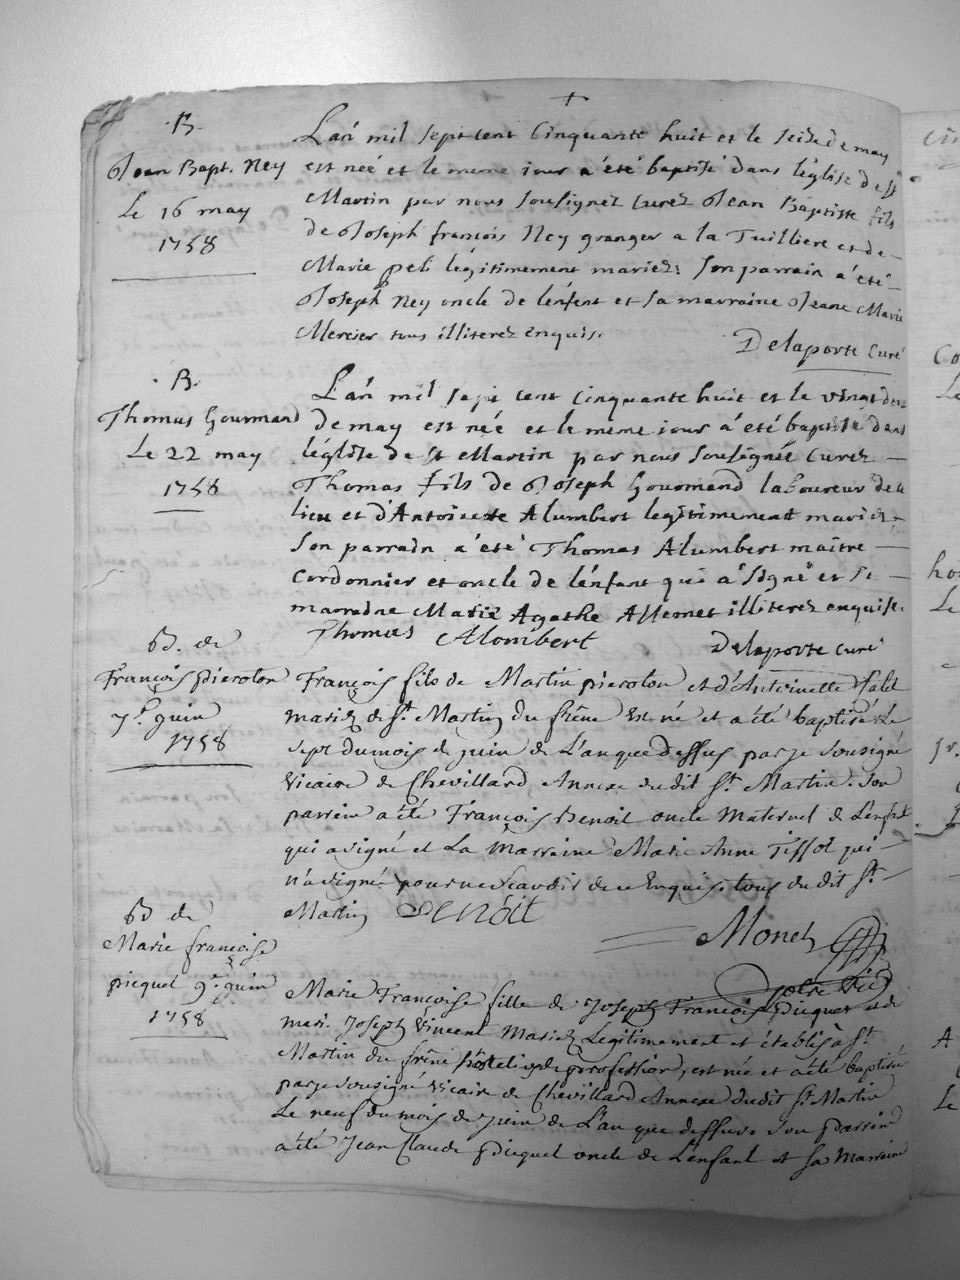 B.
Jean Bapt. Ney
Le 16 may
1758
L'an mil sept cent Cinquante huit et le seize de may
est née et le meme jour a été baptisé dans l'église de st
Martin par nous soussignez Curez Jean Baptiste fils
de Joseph françois Ney granger a la Tuilliere et de
Marie peli légitimement mariez; son parrain a été
Joseph Ney oncle de l'enfent et sa marraine Jeane Marie
Mercier tous illiterez enquis.
Delaporte Curé
B.
Thomas Gourmand
Le 22 may
1758
L'an mil sept cent cinquante huit et le vingt deux
de may est née et le meme jour a été baptisé dans
l'église de st Martin par nous sousignée Curez
Thomas fils de Joseph Gourmand laboureur de ce
lieu et d'Antoinette Alumbert legitimement mariez
son parrain a été Thomas Alumbert maitre
cordonnier et oncle de l'enfant qui a signé et sa
marraine Marie Agathe illiterez enquise.
Thomas Alombert
Delaporte Curé
B. de
François pieroton
7e juin
1758
François fils de Martin pieroton et d'Antoinette
mariez de St. Martin du frêne est né et a été baptisé Le
sept du mois de juin de L'an que dessus par je sousigné
vicaire de Chevillard Annexe du dit St. Martin. Son
parrein a été François Benoit oncle maternel de L'enfant
qui a signé et La marreine Marie Anne Tissot qui
n'a signé pour ne scavoir de ce Enquise tous du dit St.
Martin Benoit
Monet
B de
Marie françoise
picquet 9e juin
1758
Marie Françoise fille de Joseph François picquet et de
mari. Joseph Vincent Mariez Legitimement et établis à St.
Martin du frêne hôtelier de profession, est née et a été baptisée
par je sousigné vicaire de Chevillard Annexe du dit St. Martin
Le neuf du mois de juin de L'an que dessus. Son parrein
a été Jean Claude picquet oncle de L'enfant et sa Marreine